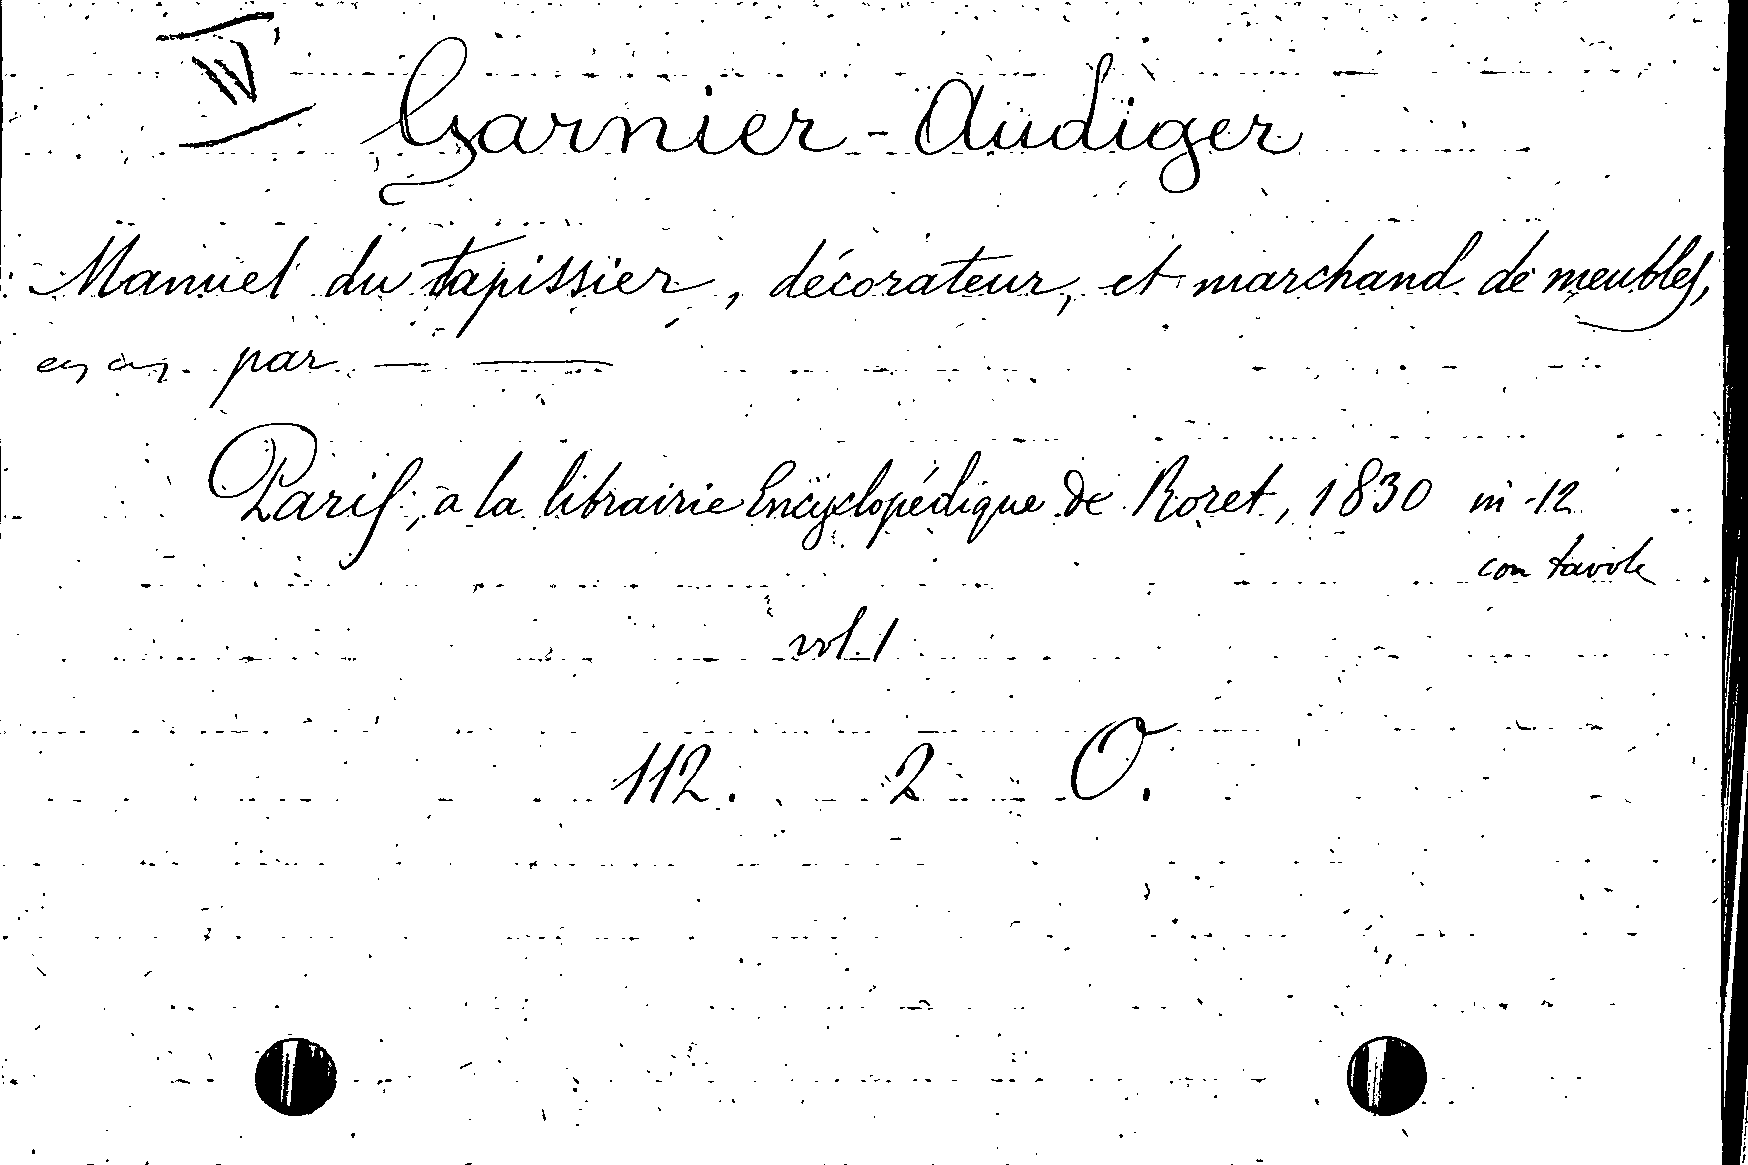 IV
Garnier - Audiger
Manuel du tapissier, décorateur, et marchand de meubles,
par — —
Paris, a la librairie Encyclopédique de Roret, 1830 in-12
con tavole
vol. 1
112. 2 O.